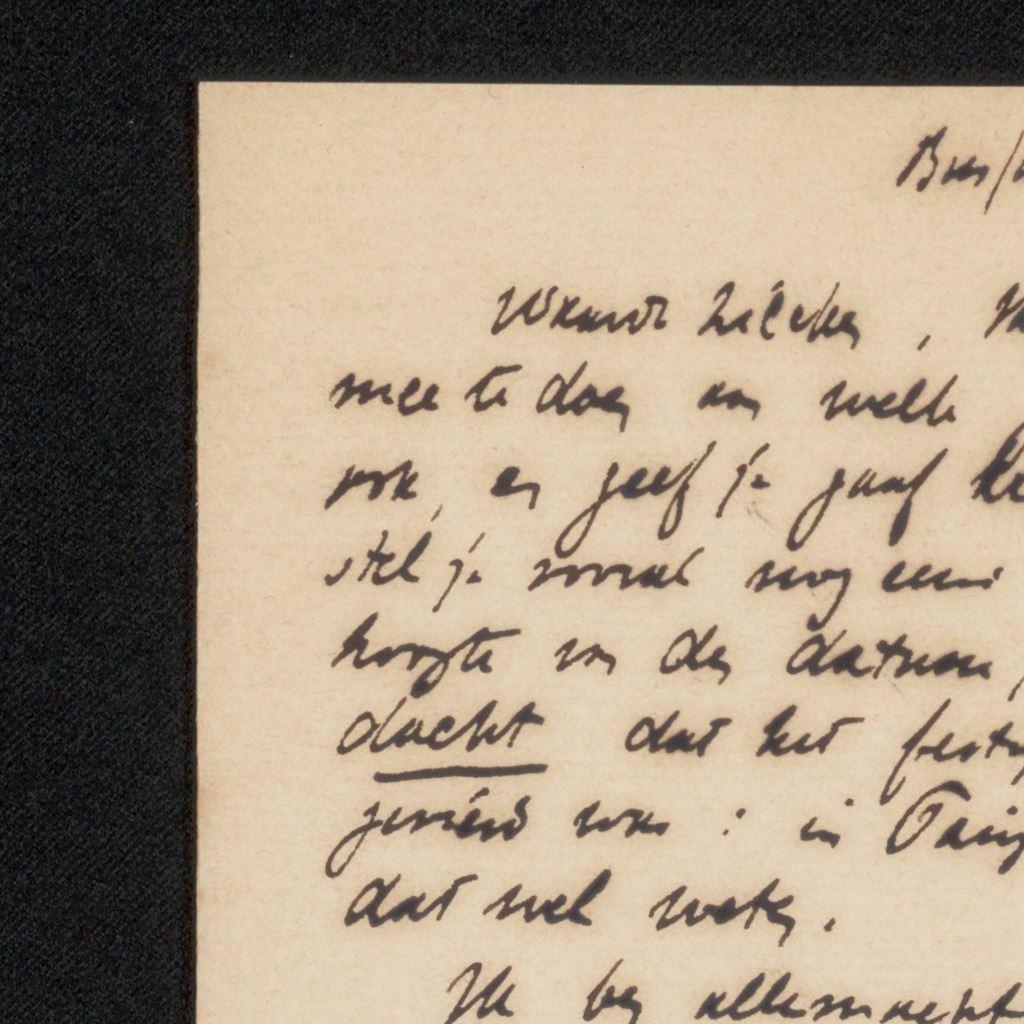 Bus/
Waarde Zilcken,
mee te doen aan welk
ook, en geef je gaarf
stel je vooral nog eens
hoogte van den datum
dacht dat het feest
gevierd was: in Parijs
dat wel weten.
Ik ben allemachtig